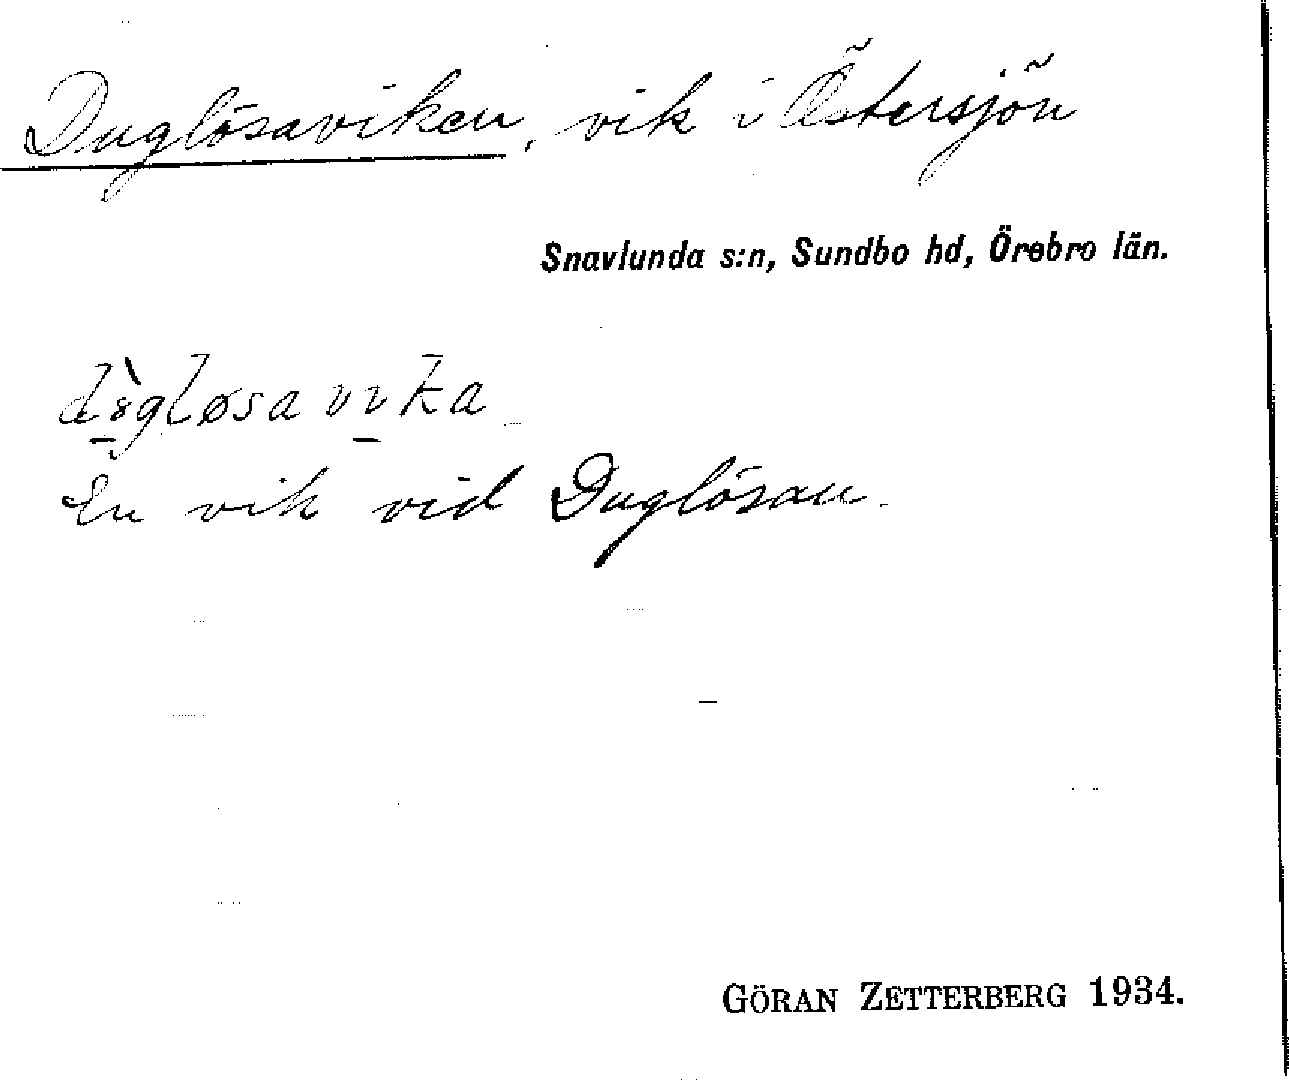 Duglösaviken, vik i Östersjön
Snavlunda s:n, Sundbo hd, Örebro län.
En vik vid Duglösan.
GÖRAN ZETTERBERG 1934.